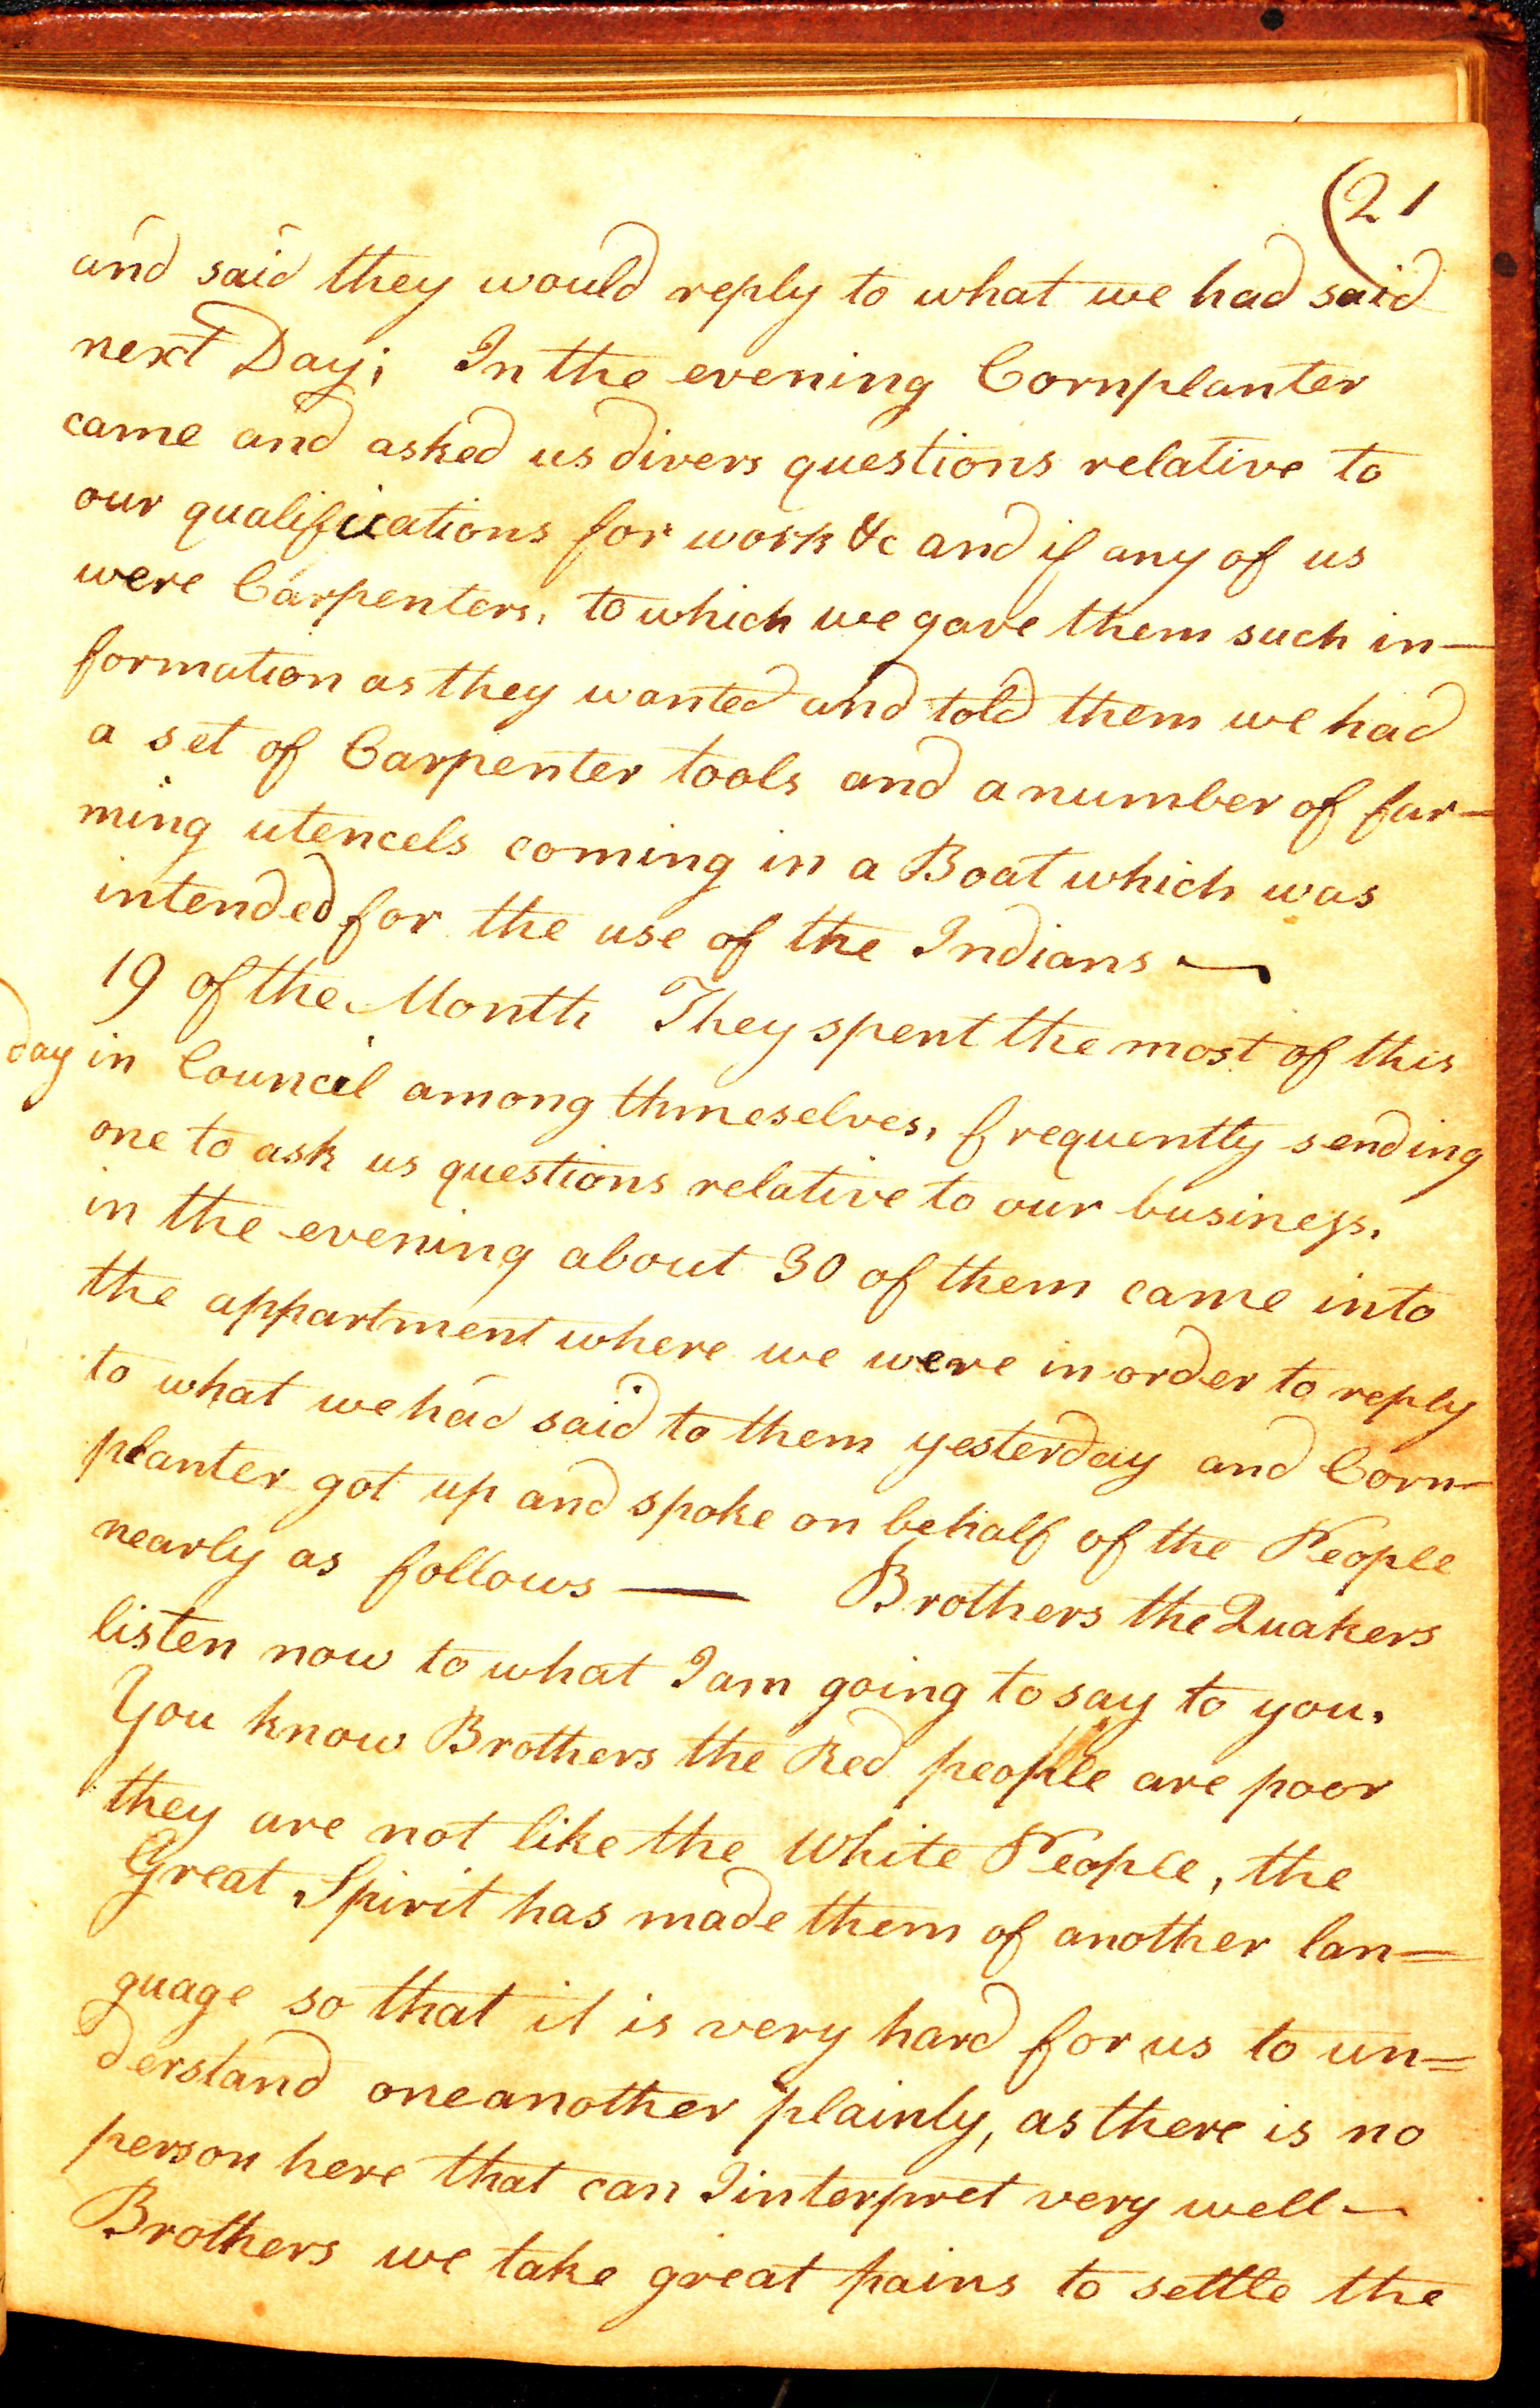 (21
and said they would reply to what we had said
next Day; In the evening Cornplanter
came and asked us divers questions relative to
our qualifications for work &c and if any of us
were Carpenters, to which we gave them such in-
formation as they wanted and told them we had
a set of Carpenter tools and a number of far-
ming utencels coming in a Boat which was
intended for the use of the Indians —
19 of the Month They spent the most of this
day in Council among thmeselves, frequently sending
one to ask us questions relative to our business.
in the evening about 30 of them came into
the appartment where we were in order to reply
to what we had said to them yesterday and Corn-
planter got up and spoke on behalf of the People
nearly as follows — Brothers the Quakers
listen now to what I am going to say to you.
You know Brothers the Red people are poor
they are not like the White People, the
Great Spirit has made them of another lan=
guage so that it is very hard for us to un=
derstand one another plainly, as there is no
person here that can Iinterpret very well —
Brothers we take great pains to settle the